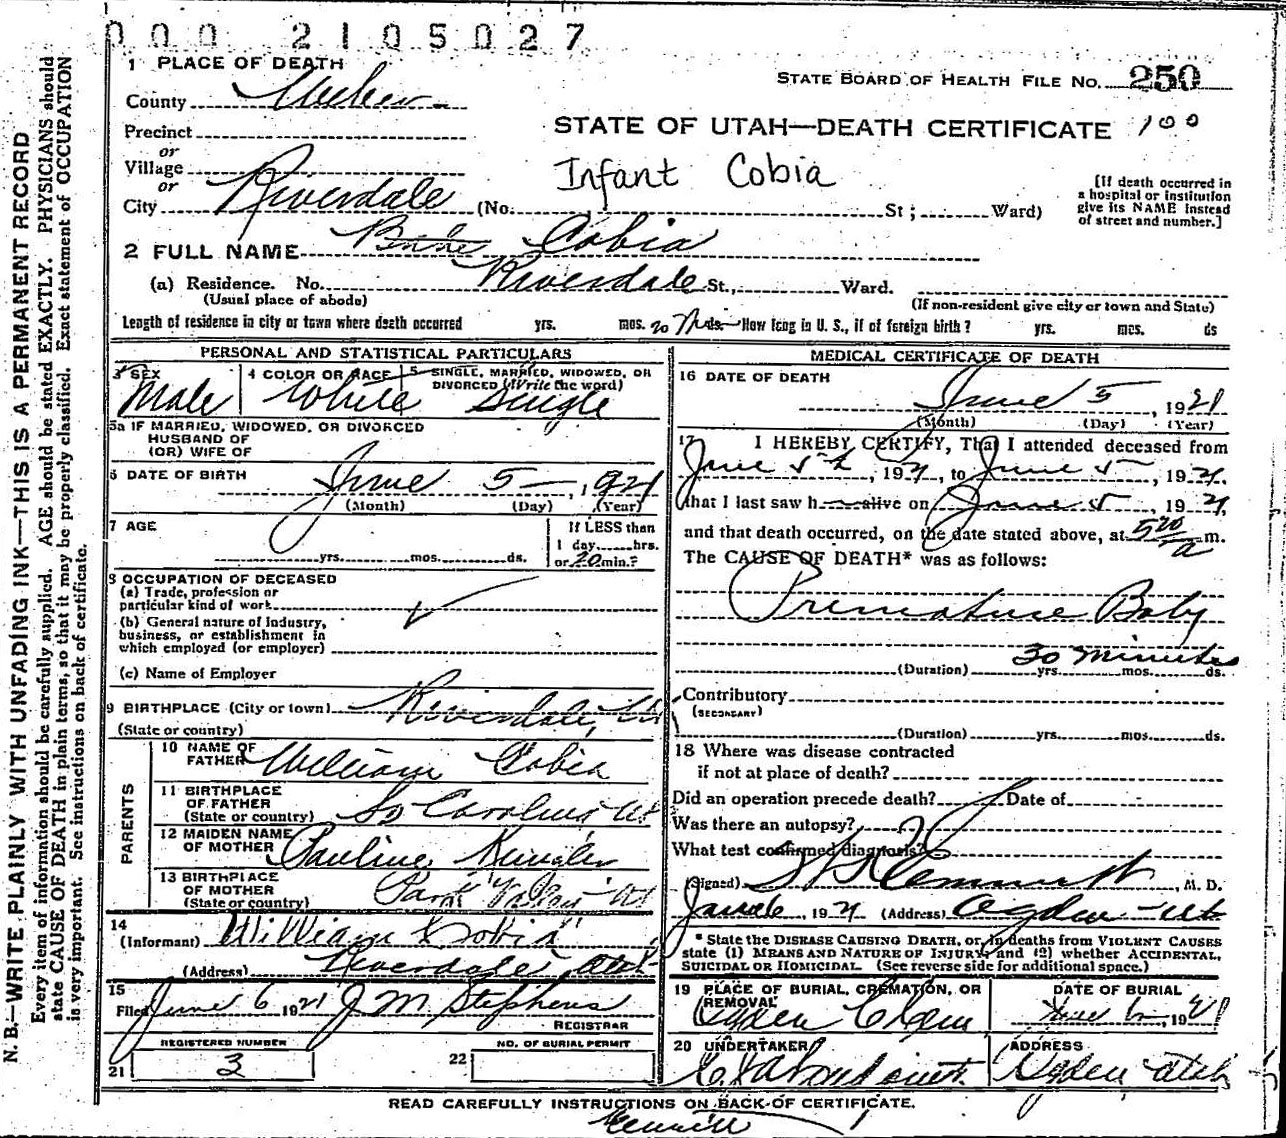 000 2105027
1 PLACE OF DEATH
STATE BOARD OF HEALTH FILE No. 250
County Weber
Precinct
STATE OF UTAH—DEATH CERTIFICATE 100
or
Village
Infant Cobia
or
City Riverdale (No. St; Ward)
[If death occurred in
a hospital or institution
give its NAME instead
of street and number.]
2 FULL NAME Cobia
(a) Residence. No. Riverdale St., Ward.
(Usual place of abode)
(If non-resident give city or town and State)
Length of residence in city or town where death occurred yrs. mos. 20 ds. How long in U. S., if of foreign birth? yrs. mos. ds
PERSONAL AND STATISTICAL PARTICULARS
3 SEX
Male
4 COLOR OR RACE
White
5 SINGLE, MARRIED, WIDOWED, OR
DIVORCED (Write the word)
Single
5a IF MARRIED, WIDOWED, OR DIVORCED
HUSBAND OF
(OR) WIFE OF
6 DATE OF BIRTH June 5 1921
(Month) (Day) (Year)
7 AGE
yrs. mos. ds.
If LESS than
1 day hrs.
or 20 min.?
8 OCCUPATION OF DECEASED
(a) Trade, profession or
particular kind of work
(b) General nature of industry,
business, or establishment in
which employed (or employer)
(c) Name of Employer
9 BIRTHPLACE (City or town) Riverdale, Ut
(State or country)
PARENTS
10 NAME OF
FATHER William Cobia
11 BIRTHPLACE
OF FATHER
(State or country) So Carolina
12 MAIDEN NAME
OF MOTHER Pauline
13 BIRTHPLACE
OF MOTHER
(State or country) Park Valley Ut
14
(Informant) William Cobia
(Address) Riverdale, Utah
15
Filed June 6 1921 J M Stephens
REGISTRAR
REGISTERED NUMBER
21 3
22 NO. OF BURIAL PERMIT
MEDICAL CERTIFICATE OF DEATH
16 DATE OF DEATH
June 5, 1921
(Month) (Day) (Year)
17 I HEREBY CERTIFY, That I attended deceased from
June 5th, 1921, to June 5, 1921.
that I last saw h alive on June 5 1921,
and that death occurred, on the date stated above, at 5 20 a m.
The CAUSE OF DEATH* was as follows:
Premature Baby
30 minutes
(Duration) yrs. mos. ds.
Contributory
(SECONDARY)
(Duration) yrs. mos. ds.
18 Where was disease contracted
if not at place of death?
Did an operation precede death? Date of
Was there an autopsy?
What test confirmed diagnosis?
(Signed) , M. D.
June 6, 1921 (Address) Ogden Ut
* State the DISEASE CAUSING DEATH, or, in deaths from VIOLENT CAUSES
state (1) MEANS AND NATURE OF INJURY; and (2) whether ACCIDENTAL,
SUICIDAL OR HOMICIDAL. (See reverse side for additional space.)
19 PLACE OF BURIAL, CREMATION, OR
REMOVAL
Ogden
DATE OF BURIAL
June 6, 1921
20 UNDERTAKER
ADDRESS
Ogden Utah
READ CAREFULLY INSTRUCTIONS ON BACK OF CERTIFICATE.
N. B.—WRITE PLAINLY WITH UNFADING INK—THIS IS A PERMANENT RECORD
Every item of information should be carefully supplied. AGE should be stated EXACTLY. PHYSICIANS should
state CAUSE OF DEATH in plain terms, so that it may be properly classified. Exact statement of OCCUPATION
is very important. See instructions on back of certificate.